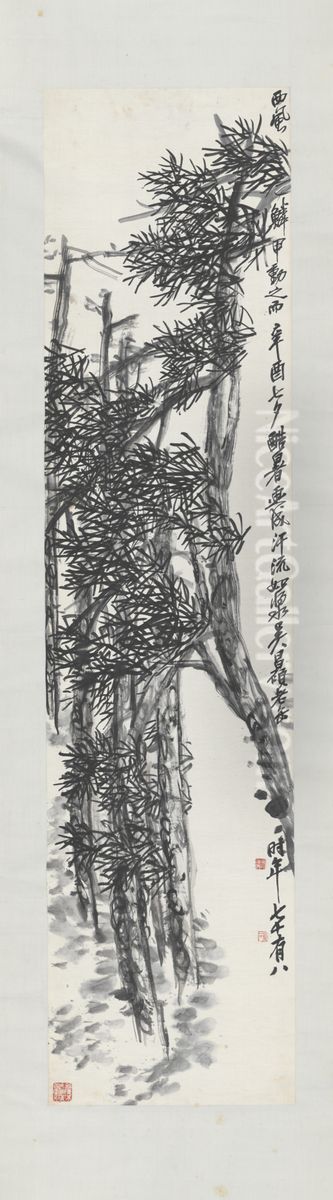 西風鱗甲動之而辛酉七夕酷暑汗流如吳昌碩老缶時年七十有八
NiceArtGallery.com